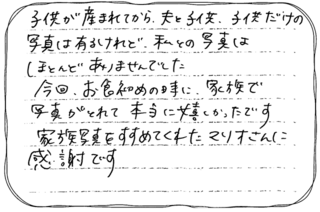 子供が産まれてから、夫と子供、子供だけの
写真は有るけれど、私との写真は
ほとんどありませんでした
今回、お食初めの時に、家族で
写真がとれて本当に嬉しかったです
家族写真をすすめてくれたマリオさんに
感謝です